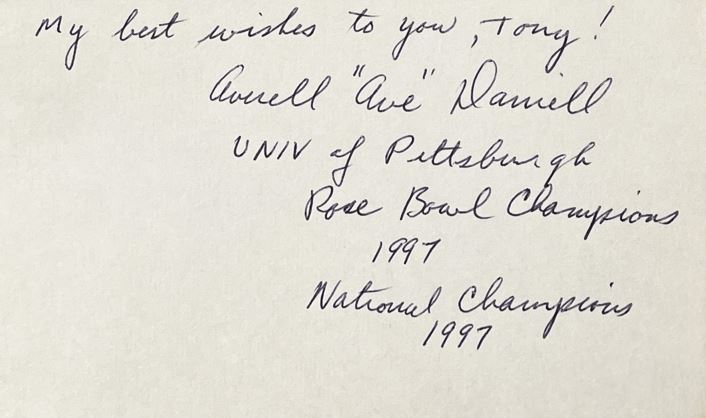 My best wishes to you, Tony!
Averell "Ave" Daniell
UNIV of Pittsburgh
Rose Bowl Champions
1997
National Champions
1997